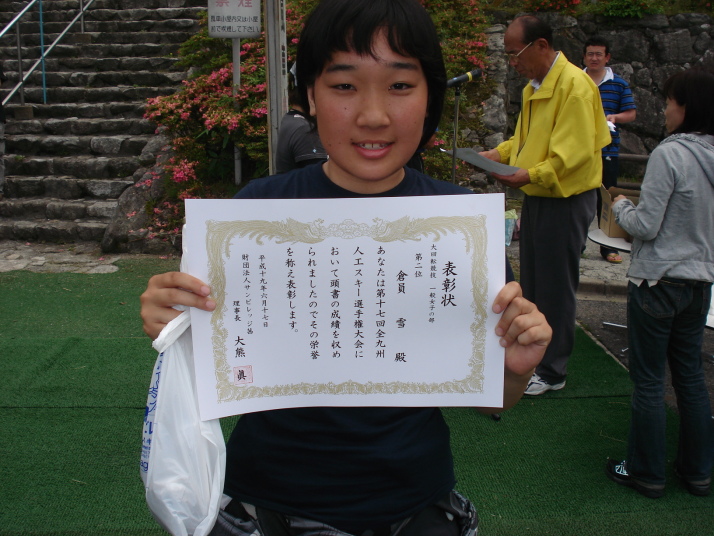 表彰状
大回転競技 一般女子の部
第二位
倉員 雪 殿
あなたは第十七回全九州
人工スキー選手権大会に
おいて頭書の成績を収め
られましたのでその栄誉
を称え表彰します。
平成十九年六月十七日
財団法人サンビレッジ茜
理事長 大熊 眞